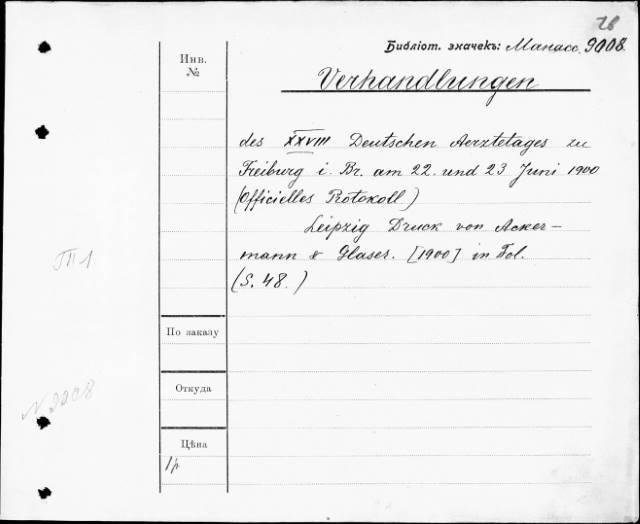 28
Библіот. значекъ: Манасс. 9008.
Инв.
№
Verhandlungen
des XXVIII Deutschen Aerztetages zu
Freiburg i. Br. am 22. und 23 Juni 1900
(Officielles Protokoll)
Leipzig Druck von Acker-
mann & Glaser. [1900] in Fol.
(S. 48.)
По заказу
Откуда
N 9008
Цѣна
1р